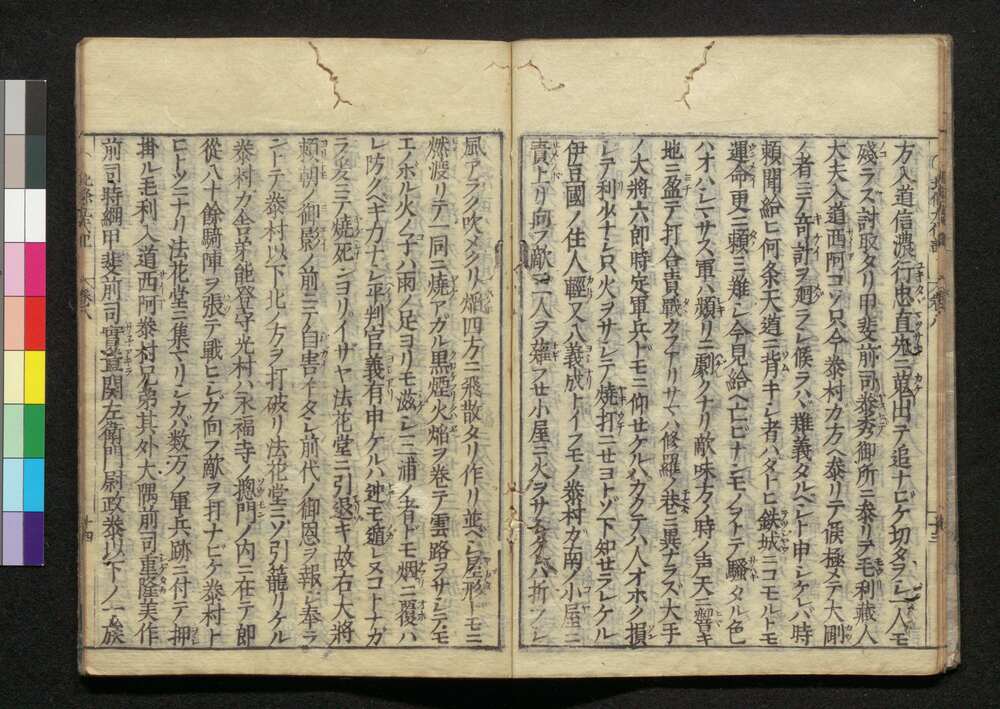 方入道信濃行忠直先ニ蒐出テ追ナビケ切タヲシ一人モ
殘ラズ討取タリ甲斐前司泰秀御所ニ泰リテ毛利藏人
大夫入道西阿コソ只今泰村カ方ヘ泰リテ候極メテ大剛
ノ者ニテ奇計ヲ廻ラシ候ラハ難義タルベシト申シケレバ時
頼聞給ヒ何条天道ニ背キシ者ハタトヒ鉄城ニコモルトモ
運命更ニ頼ミ難シ今見給ヘ亡ビナンモノヲトテ騒タル色
ハオハシマサス軍ハ頻リニ劇クナリ敵味方ノ時ノ声天ニ響キ
地ニ盈テ打合責戰カフアリサマハ修羅ノ巷ニ異ナラス大手
ノ大將六郎時定軍兵ドモニ仰セケルハカクテハ人オホク損
シテ利少ナシ只火ヲサシテ焼打ニセヨトゾ下知セラレケル
伊豆國ノ住人輕又八義成トイフモノ泰村カ南ノ小屋ニ
責ヨリ向フ敵二人ヲ薙フせ小屋ニ火ヲサス
風アラク吹メクリ焔四方ニ飛散タリ作リ並ベシ屋形トモニ
燃渡リテ一同ニ燒アガル黒煙火焔ヲ巻テ雲路ヲサシテモ
エノボル火ノ子ハ雨ノ足ヨリモ滋シ三浦ノ者トモ烟ニ覆ハ
レ防クベキカナシ平判官義有申ケルハ迚モ遁レヌコトナガ
ラ爰ニテ焼死シヨリイザヤ法花堂ニ引退キ故右大將
頼朝ノ御影ノ前ニテ自害イタシ前代ノ御恩ヲ報シ奉ラ
ントテ泰村以下北ノ方ヲ打破リ法花堂ニゾ引籠リケル
泰村カ舎弟能登守光村ハ永福寺ノ摠門ノ内ニ在テ郎
從八十餘騎陣ヲ張テ戰ヒシガ向フ敵ヲ打ナビケ泰村ト
ヒトツニナリ法花堂ニ集マリシカバ数万ノ軍兵跡ニ付テ押
掛ル毛利入道西阿泰村兄弟其外大隅前司重隆美作
前司時綱甲斐前司實章関左衛門尉政泰以下ノ一族